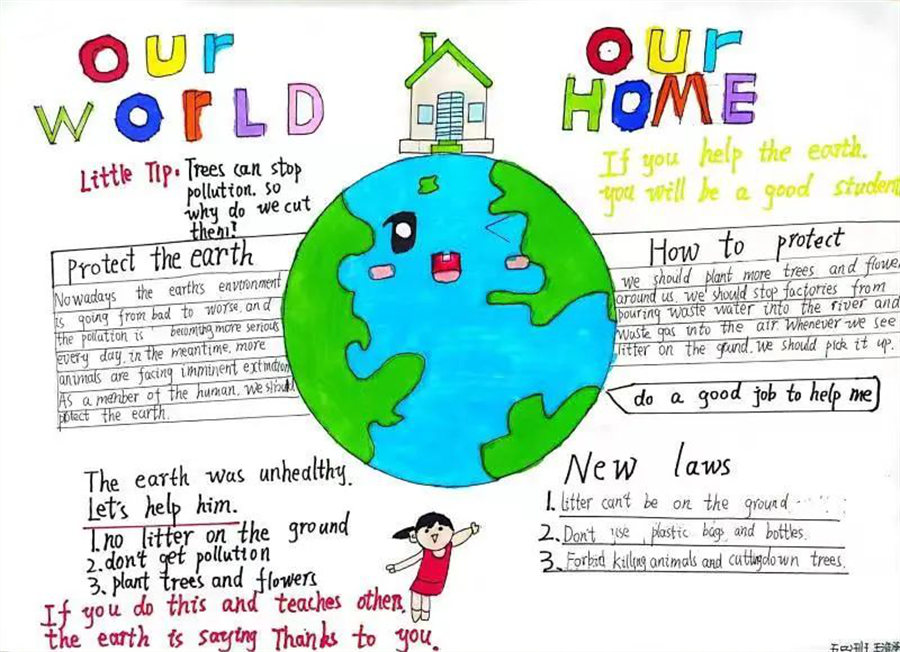 OUR
WORLD
OUR
HOME
Little Tip. Trees can stop
pollution. so
why do we cut
them!
If you help the earth.
you will be a good student
Protect the earth
Nowadays the earth's environment
is going from bad to worse. and
the pollution is becoming more serious
every day. in the meantime, more
animals are facing imminent extinction
As a member of the human. we should
protect the earth.
How to protect
we should plant more trees and flowe
around us. we should stop factories from
pouring waste water into the river and
waste gas into the air. Whenever we see
litter on the grund. we should pick it up.
do a good job to help me
The earth was unhealthy.
Let's help him.
1. no litter on the ground
2. don't get pollution
3. plant trees and flowers
If you do this and teaches other.
the earth is saying Thanks to you.
New laws
1. litter can't be on the ground
2. Don't use plastic bags and bottles.
3. Forbid killing animals and cuttingdown trees.